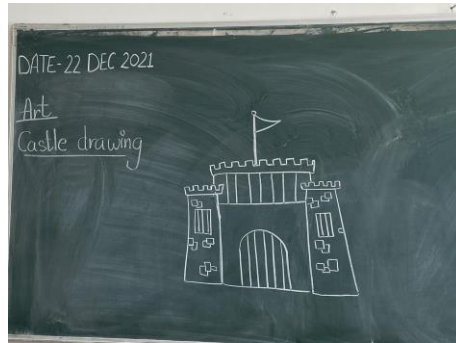 DATE-22 DEC 2021
Art
Castle drawing